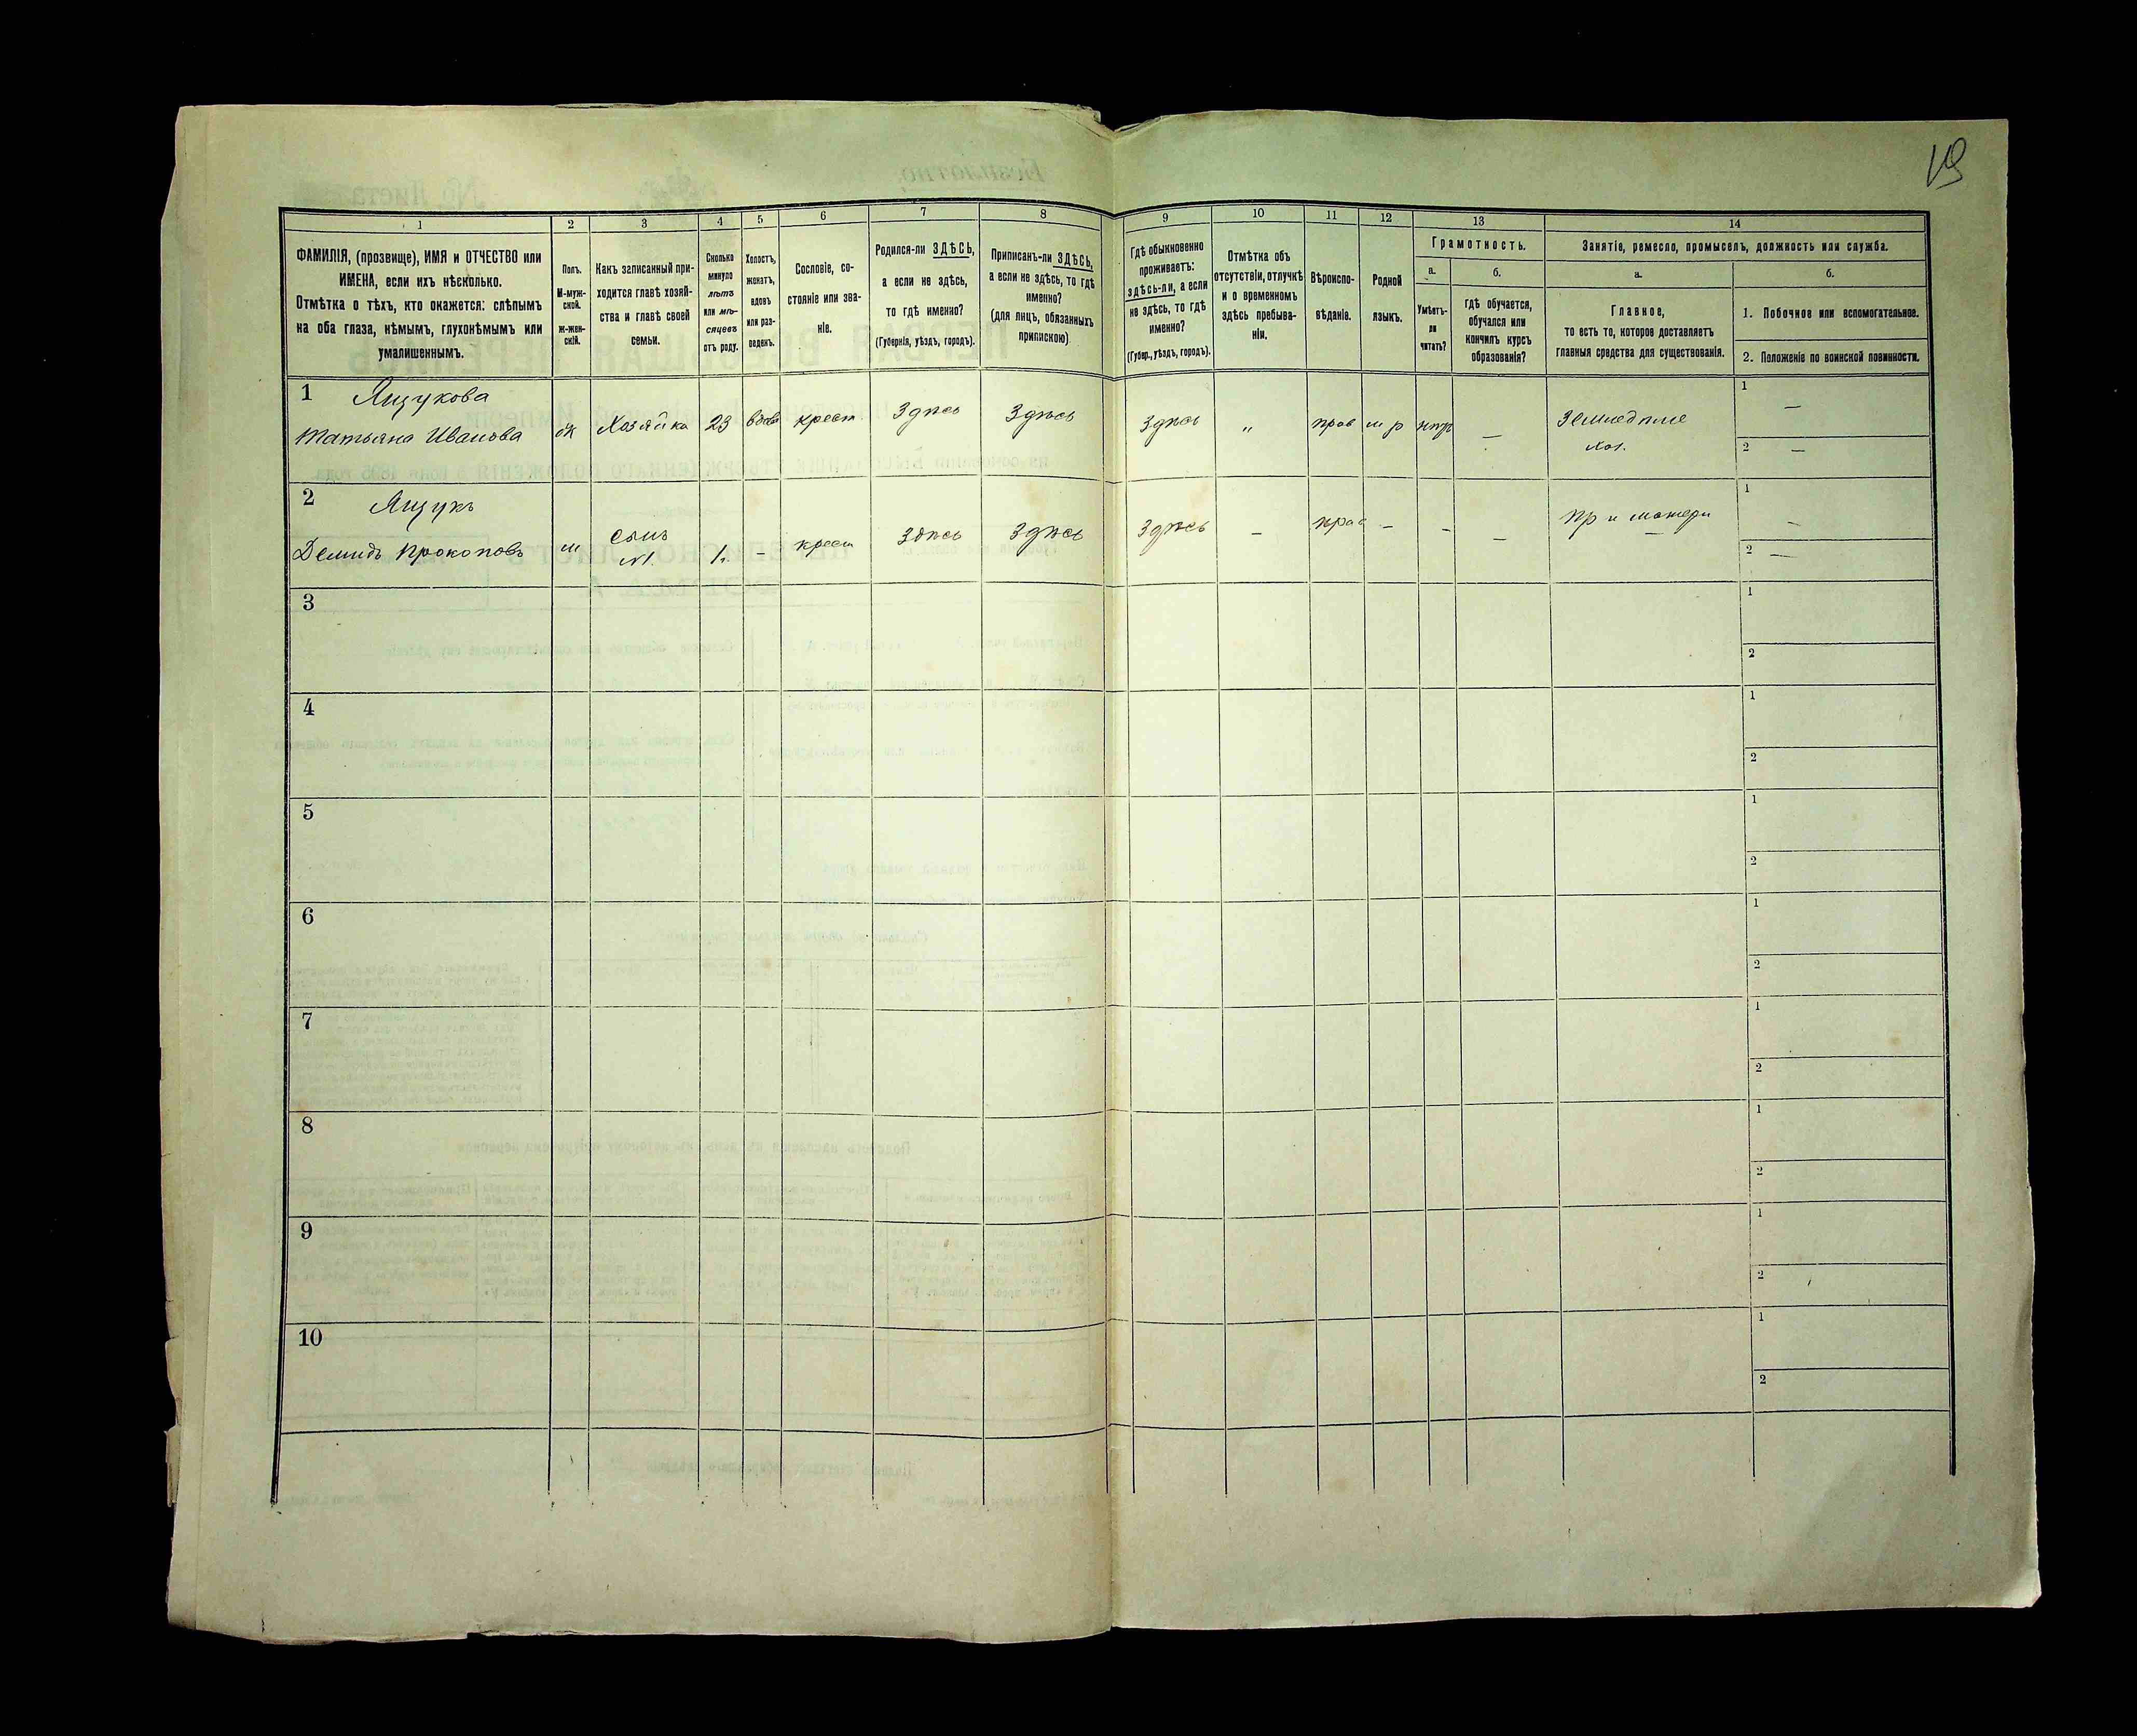 19
1 2 3 4 5 6 7 8 9 10 11 12 13 14
ФАМИЛІЯ, (прозвище), ИМЯ и ОТЧЕСТВО или
ИМЕНА, если ихъ нѣсколько.
Отмѣтка о тѣхъ, кто окажется: слѣпымъ
на оба глаза, нѣмымъ, глухонѣмымъ или
умалишеннымъ.
Полъ.
М-муж-
ской.
ж-жен-
скій.
Какъ записанный при-
ходится главѣ хозяй-
ства и главѣ своей
семьи.
Сколько
минуло
лѣтъ
или мѣ-
сяцевъ
отъ роду.
Холостъ,
женатъ,
вдовъ
или раз-
веденъ.
Сословіе, со-
стояніе или зва-
ніе.
Родился-ли ЗДѢСЬ,
а если не здѣсь,
то гдѣ именно?
(Губернія, уѣздъ, городъ).
Приписанъ-ли ЗДѢСЬ,
а если не здѣсь, то гдѣ
именно?
(для лицъ, обязанныхъ
припискою)
Гдѣ обыкновенно
проживаетъ:
здѣсь-ли, а если
не здѣсь, то гдѣ
именно?
(Губер., уѣздъ, городъ).
Отмѣтка объ
отсутствіи, отлучкѣ
и о временномъ
здѣсь пребыва-
ніи.
Вѣроиспо-
вѣданіе.
Родной
языкъ.
Грамотность.
а.
Умѣетъ-
ли
читать?
б.
гдѣ обучается,
обучался или
кончилъ курсъ
образованія?
Занятіе, ремесло, промыселъ, должность или служба.
а.
Главное,
то есть то, которое доставляетъ
главныя средства для существованія.
б.
1. Побочное или вспомогательное.
2. Положеніе по воинской повинности.
1 Ящукова
Татьяна Иванова ж Хозяйка 23 вдова крест Здѣсь Здѣсь Здѣсь „ прав м р — Землед
хоз.
1 —
2 —
2 Ящукъ
Демидъ Прокоповъ м сынъ
№1. 1 г. — крест Здѣсь Здѣсь Здѣсь — прав — — — пр и матери
1 —
2 —
3
1
2
4
1
2
5
1
2
6
1
2
7
1
2
8
1
2
9
1
2
10
1
2